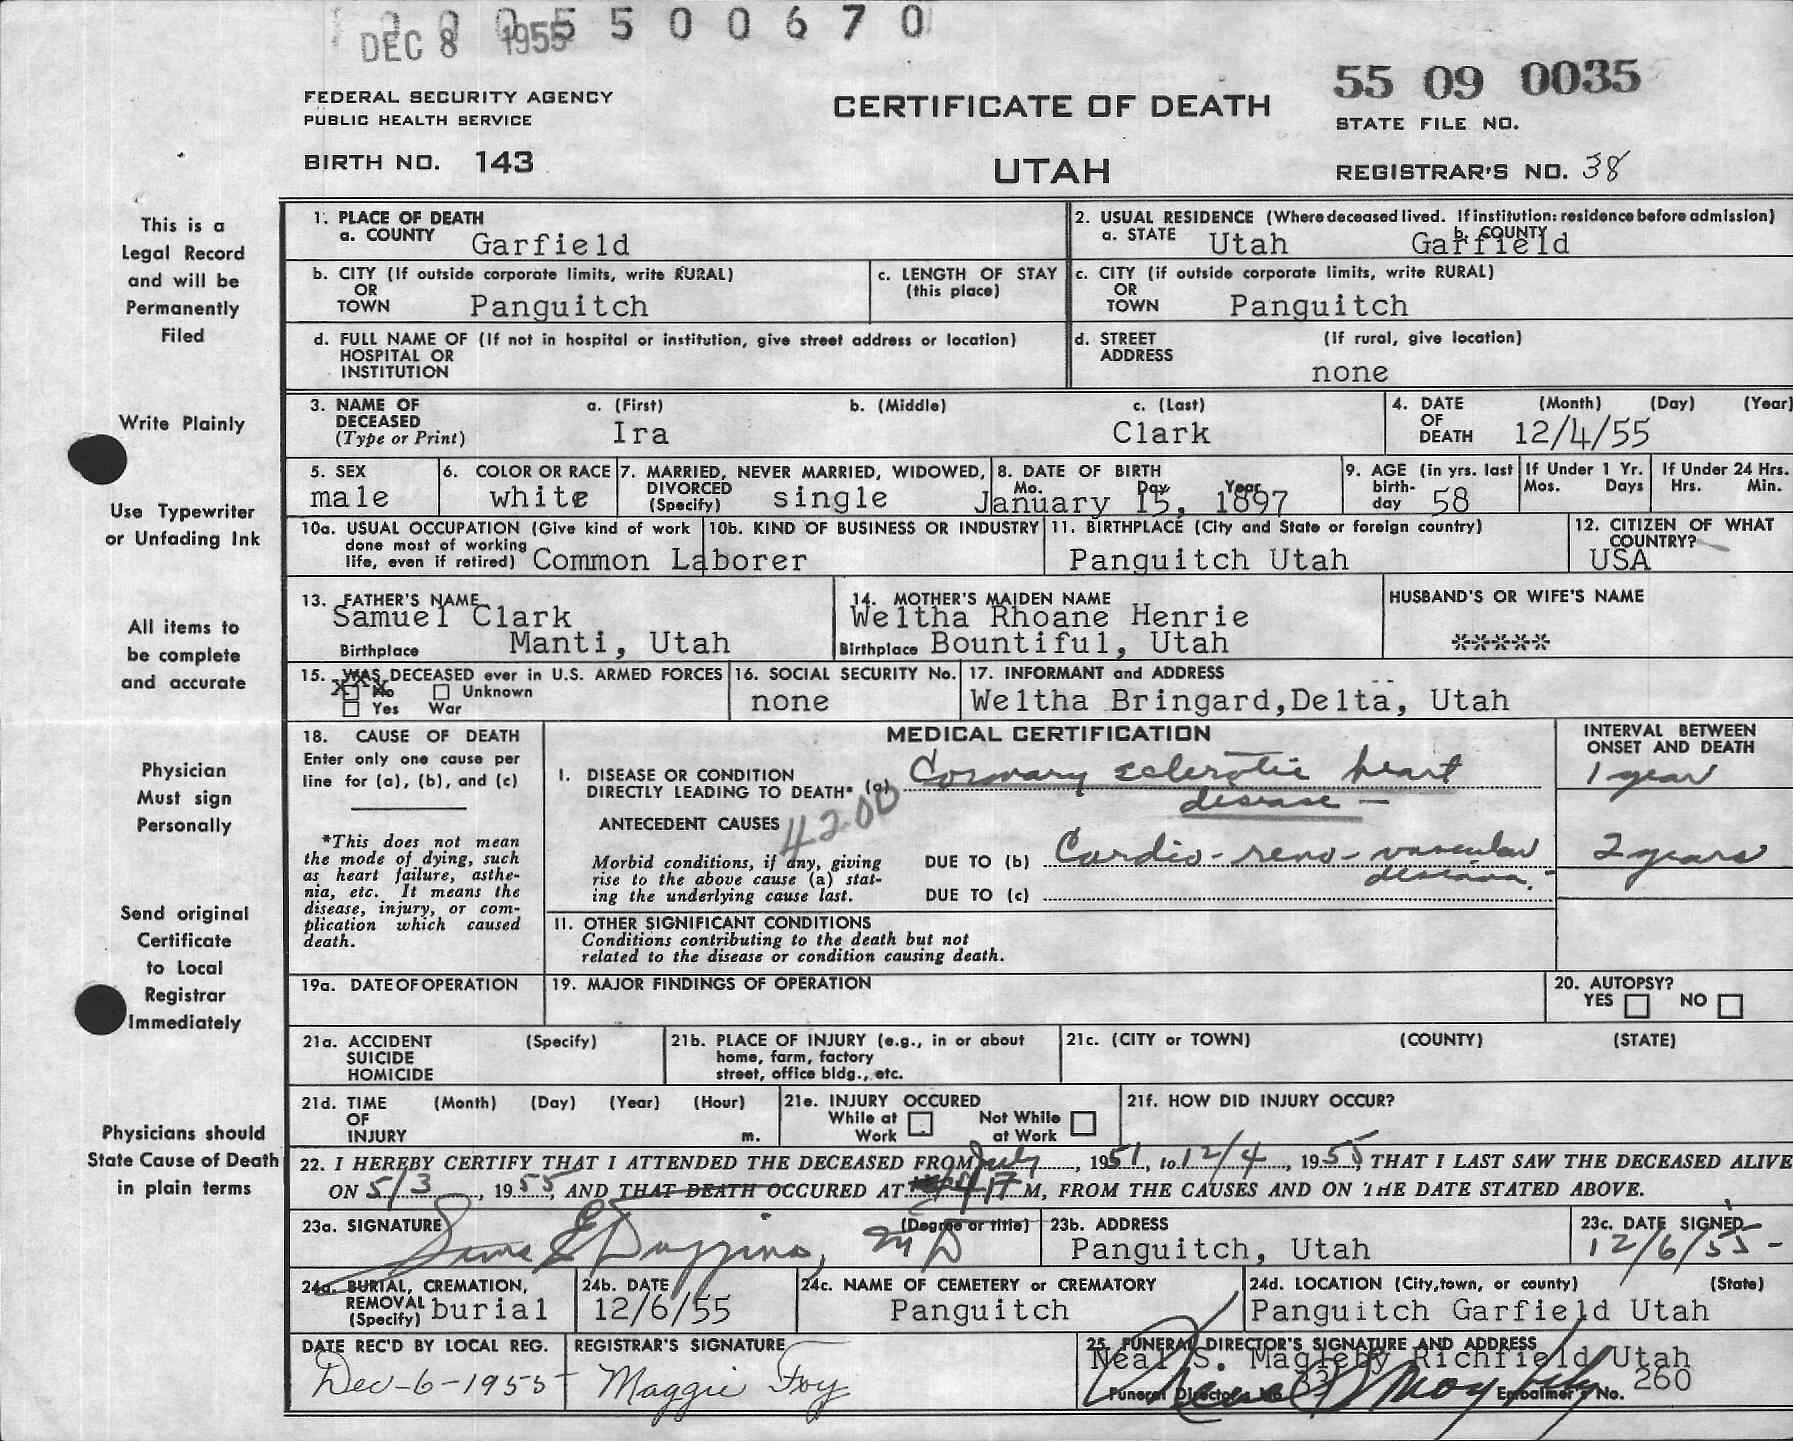 5 5 0 0 6 7 0
DEC 8 1955
55 09 0035
FEDERAL SECURITY AGENCY
PUBLIC HEALTH SERVICE
CERTIFICATE OF DEATH
STATE FILE NO.
BIRTH NO. 143
UTAH
REGISTRAR'S NO. 38
This is a
Legal Record
and will be
Permanently
Filed
Write Plainly
Use Typewriter
or Unfading Ink
All items to
be complete
and accurate
Physician
Must sign
Personally
Send original
Certificate
to Local
Registrar
Immediately
Physicians should
State Cause of Death
in plain terms
1. PLACE OF DEATH
a. COUNTY Garfield
2. USUAL RESIDENCE (Where deceased lived. If institution: residence before admission)
a. STATE Utah b. COUNTY Garfield
b. CITY (If outside corporate limits, write RURAL)
OR
TOWN Panguitch
c. LENGTH OF STAY
(this place)
c. CITY (if outside corporate limits, write RURAL)
OR
TOWN Panguitch
d. FULL NAME OF (If not in hospital or institution, give street address or location)
HOSPITAL OR
INSTITUTION
d. STREET (If rural, give location)
ADDRESS
none
3. NAME OF a. (First) b. (Middle) c. (Last)
DECEASED
(Type or Print) Ira Clark
4. DATE (Month) (Day) (Year)
OF
DEATH 12/4/55
5. SEX
male
6. COLOR OR RACE
white
7. MARRIED, NEVER MARRIED, WIDOWED,
DIVORCED
(Specify) single
8. DATE OF BIRTH
Mo. Day Year
January 15, 1897
9. AGE (in yrs. last
birth-
day 58
If Under 1 Yr.
Mos. Days
If Under 24 Hrs.
Hrs. Min.
10a. USUAL OCCUPATION (Give kind of work
done most of working
life, even if retired) Common Laborer
10b. KIND OF BUSINESS OR INDUSTRY
11. BIRTHPLACE (City and State or foreign country)
Panguitch Utah
12. CITIZEN OF WHAT
COUNTRY?
USA
13. FATHER'S NAME
Samuel Clark
Birthplace Manti, Utah
14. MOTHER'S MAIDEN NAME
Weltha Rhoane Henrie
Birthplace Bountiful, Utah
HUSBAND'S OR WIFE'S NAME
*****
15. WAS DECEASED ever in U.S. ARMED FORCES
X No Unknown
Yes War
16. SOCIAL SECURITY No.
none
17. INFORMANT and ADDRESS
Weltha Bringard,Delta, Utah
18. CAUSE OF DEATH
Enter only one cause per
line for (a), (b), and (c)
*This does not mean
the mode of dying, such
as heart failure, asthe-
nia, etc. It means the
disease, injury, or com-
plication which caused
death.
MEDICAL CERTIFICATION
INTERVAL BETWEEN
ONSET AND DEATH
I. DISEASE OR CONDITION
DIRECTLY LEADING TO DEATH* (a) Coronary sclerotic heart
disease -
1 year
ANTECEDENT CAUSES 4200
Morbid conditions, if any, giving
rise to the above cause (a) stat-
ing the underlying cause last.
DUE TO (b) Cardio-reno-vascular
disease.
2 years
DUE TO (c)
II. OTHER SIGNIFICANT CONDITIONS
Conditions contributing to the death but not
related to the disease or condition causing death.
19a. DATE OF OPERATION
19. MAJOR FINDINGS OF OPERATION
20. AUTOPSY?
YES NO
21a. ACCIDENT (Specify)
SUICIDE
HOMICIDE
21b. PLACE OF INJURY (e.g., in or about
home, farm, factory
street, office bldg., etc.
21c. (CITY or TOWN) (COUNTY) (STATE)
21d. TIME (Month) (Day) (Year) (Hour)
OF
INJURY m.
21e. INJURY OCCURED
While at Not While
Work at Work
21f. HOW DID INJURY OCCUR?
22. I HEREBY CERTIFY THAT I ATTENDED THE DECEASED FROM July, 1951, to 12/4, 1955, THAT I LAST SAW THE DECEASED ALIVE
ON 5/3, 1955, AND THAT DEATH OCCURED AT M, FROM THE CAUSES AND ON THE DATE STATED ABOVE.
23a. SIGNATURE (Degree or title)
Sims E Duggins, MD
23b. ADDRESS
Panguitch, Utah
23c. DATE SIGNED
12/6/55-
24a. BURIAL, CREMATION,
REMOVAL
(Specify) burial
24b. DATE
12/6/55
24c. NAME OF CEMETERY or CREMATORY
Panguitch
24d. LOCATION (City,town, or county) (State)
Panguitch Garfield Utah
DATE REC'D BY LOCAL REG.
Dec-6-1955
REGISTRAR'S SIGNATURE
Maggie Foy
25. FUNERAL DIRECTOR'S SIGNATURE AND ADDRESS
Neal S. Magleby Richfield Utah
Funeral Director's No. Embalmer's No. 260